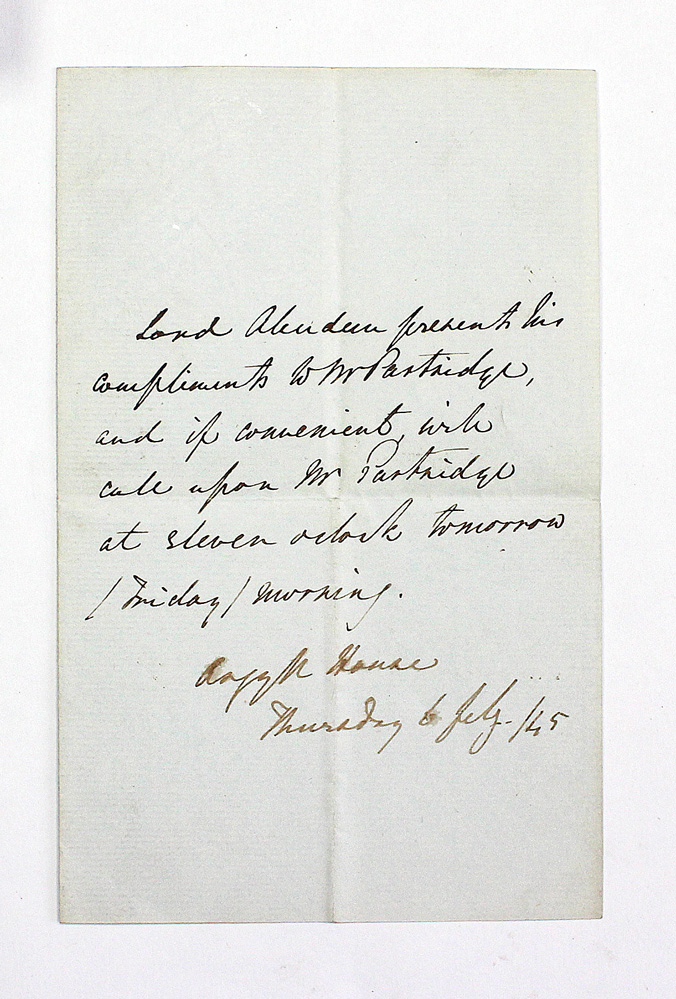 Lord Aberdeen presents his
compliments to Mr Partridge,
and if convenient, will
call upon Mr Partridge
at eleven oclock tomorrow
/Friday/ morning.
Argyll House
Thursday 6 Feby. /45